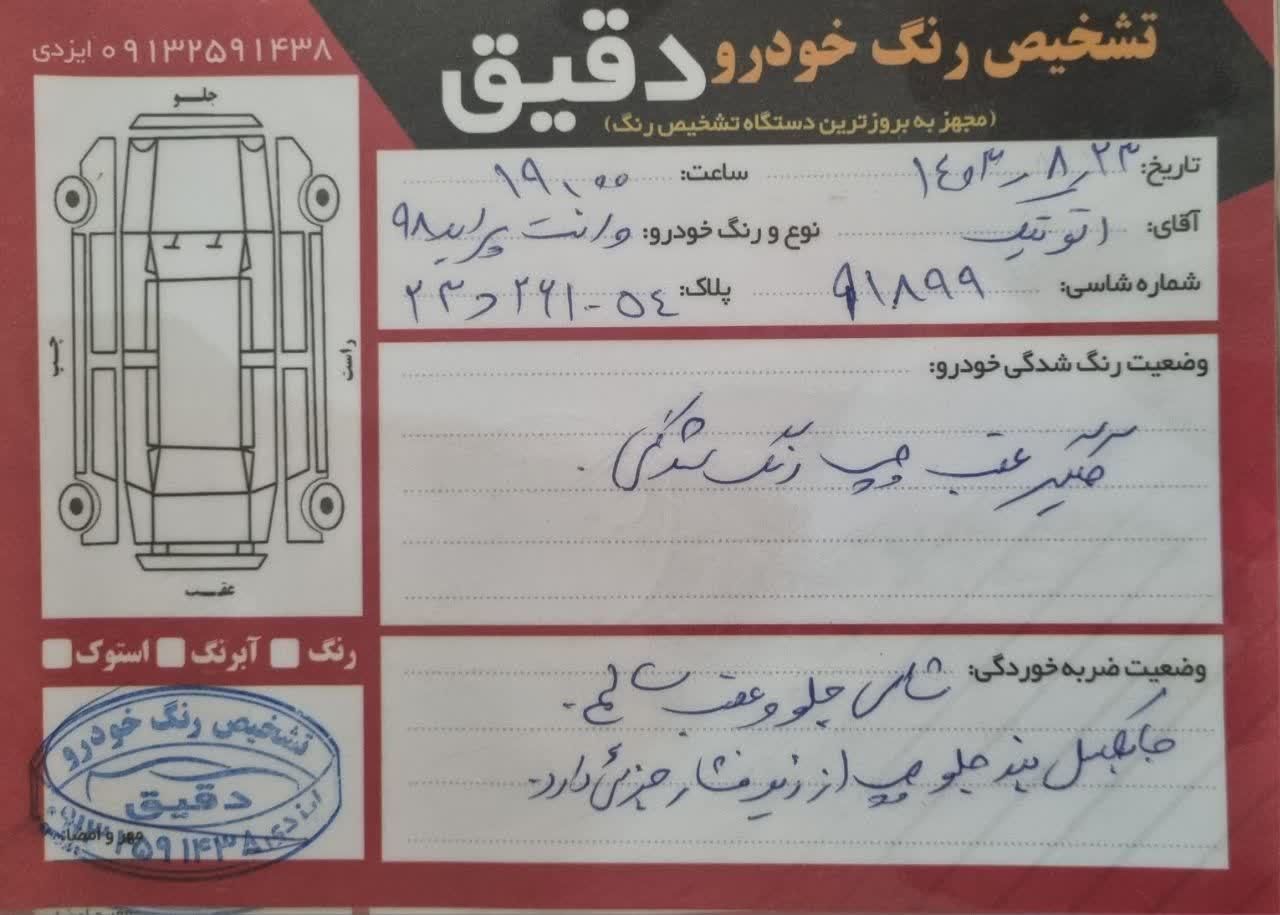 تشخیص رنگ خودرو دقیق
(مجهز به بروزترین دستگاه تشخیص رنگ)
۰۹۱۳۲۵۹۱۴۳۸ ایزدی
تاریخ: ۱۴۰۳/۸/۲۳ ساعت: ۱۹:۰۰
آقای: اتوتیک نوع و رنگ خودرو: وانت پراید ۹۸
شماره شاسی: ۹۱۸۹۹ پلاک: ۲۳ و ۲۶۱-۵۴
وضعیت رنگ شدگی خودرو:
گلگیر عقب چپ رنگ شدگی.
وضعیت ضربه خوردگی: شاسی جلو و عقب سالم.
جلو چپ از زیر فشار جزئی دارد.
جلـو
چپ
راست
عقـب
رنگ آبرنگ استوک
تشخیص رنگ خودرو
دقیق
ایزدی
۰۹۱۳۲۵۹۱۴۳۸
مهر و امضاء: